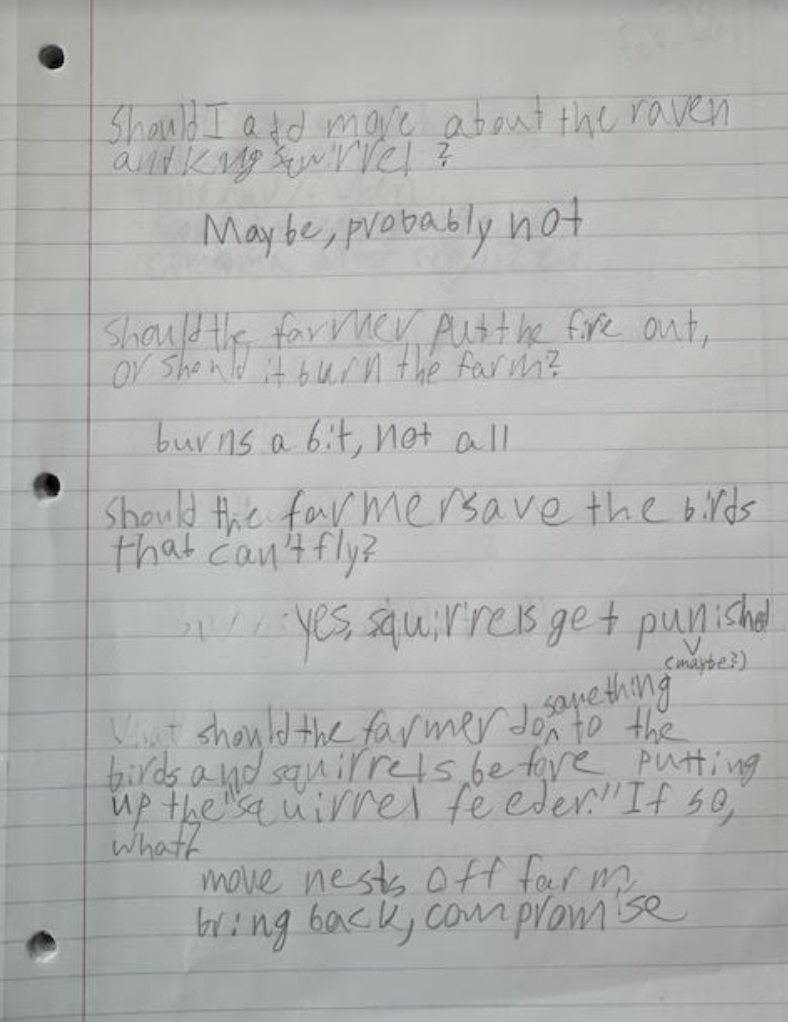 Should I add more about the raven
and King Squirrel?
Maybe, probably not
Should the farmer put the fire out,
or should it burn the farm?
burns a bit, not all
Should the farmer save the birds
that can't fly?
yes, squirrels get punished
(maybe?)
something
should the farmer do ^ to the
birds and squirrels before putting
up the "squirrel feeder." If so,
what?
move nests off farm,
bring back, compromise